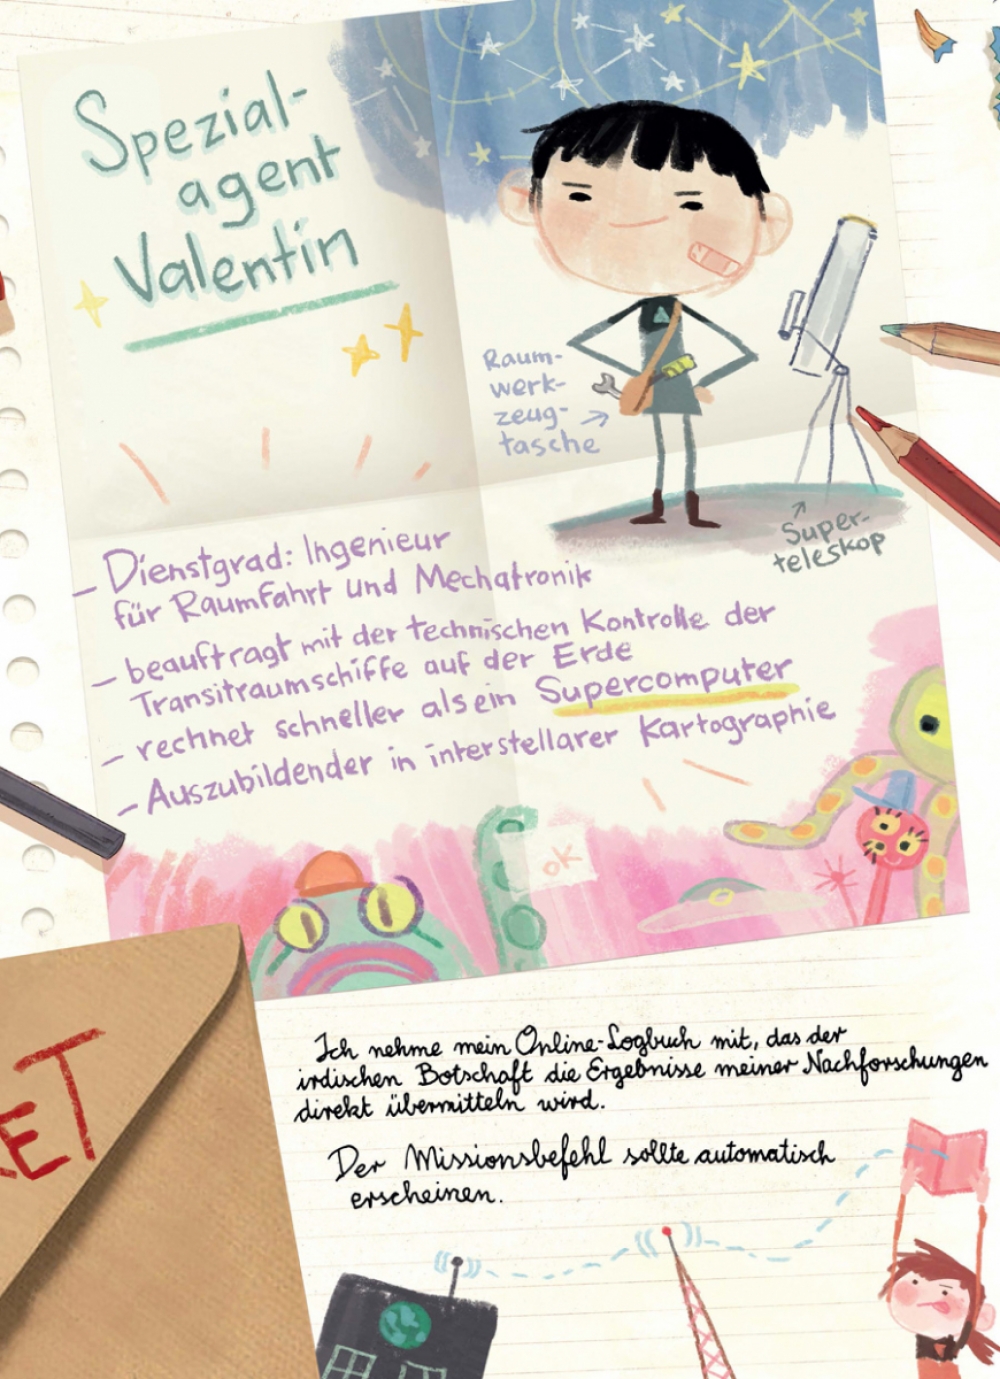 Spezial-
agent
Valentin
Raum-
werk-
zeug-
tasche
Super-
teleskop
– Dienstgrad: Ingenieur
für Raumfahrt und Mechatronik
– beauftragt mit der technischen Kontrolle der
Transitraumschiffe auf der Erde
– rechnet schneller als ein Supercomputer
– Auszubildender in interstellarer Kartographie
OK
ET
Ich nehme mein Online-Logbuch mit, das der
irdischen Botschaft die Ergebnisse meiner Nachforschungen
direkt übermitteln wird.
Der Missionsbefehl sollte automatisch
erscheinen.